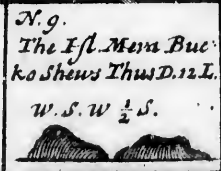 N. 9.
The Isl. Mera Buc-
ko Shews Thus D. 12 L.
W. S. W ½ S.